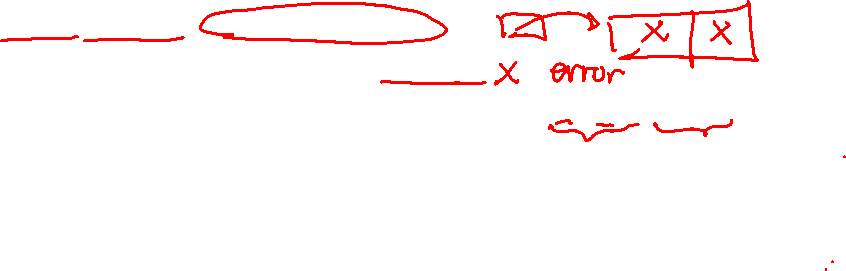 X X
X error